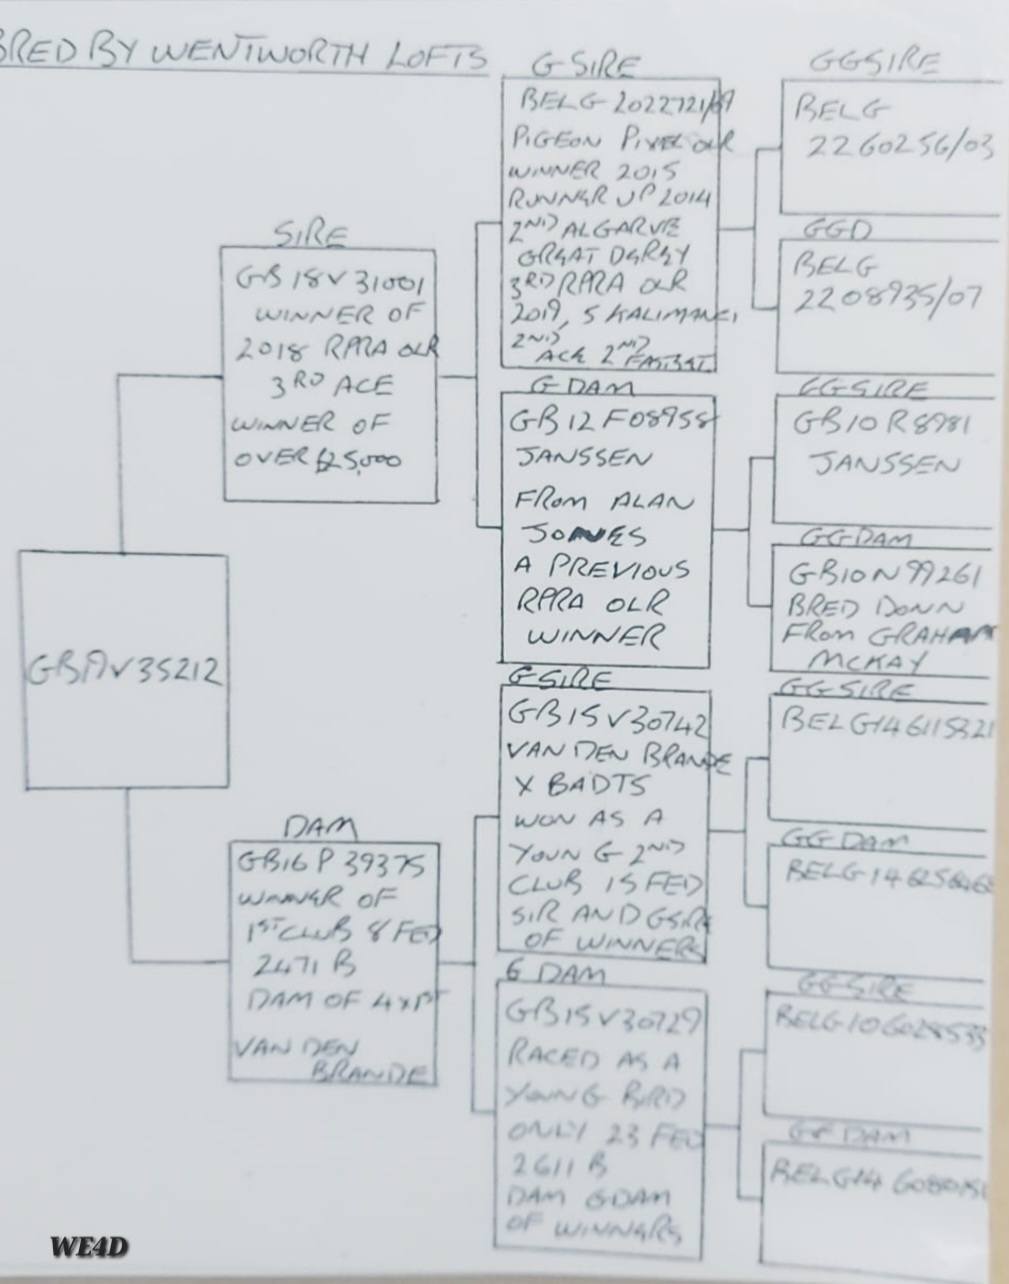 BRED BY WENTWORTH LOFTS
GSIRE
BELG 2022721/09
PIGEON PIXEL OLR
WINNER 2015
RUNNER UP 2014
2ND ALGARVE
GREAT DERBY
3RD RPRA OLR
2019, 5 KALIMANCI
2ND
ACE 2ND FASTEST
GGSIRE
BELG
2260256/03
GGD
BELG
2208935/07
SIRE
GB 18V31001
WINNER OF
2018 RPRA OLR
3RD ACE
WINNER OF
OVER £25,000
G DAM
GB12F08958
JANSSEN
FROM ALAN
A PREVIOUS
RPRA OLR
WINNER
GGSIRE
GB10R8981
JANSSEN
GGDAM
GB10N99261
BRED DONN
FROM GRAHAM
MCKAY
V35212
GSIRE
GB15V30742
VAN DEN BRANDE
X BADTS
WON AS A
YOUNG 2ND
CLUB 15 FED
SIR AND GSIRE
OF WINNERS
GGSIRE
BELG146115321
GGDAM
BELG14
DAM
GB16P39375
WINNER OF
1ST CLUB 8 FED
2471 B
DAM OF 4X1ST
VAN DEN
BRANDE
G DAM
GB15V30729
RACED AS A
YOUNG BIRD
ONLY 23 FED
2611 B
DAM GDAM
OF WINNERS
GGSIRE
BELG106028533
GGDAM
BELG14
WE4D